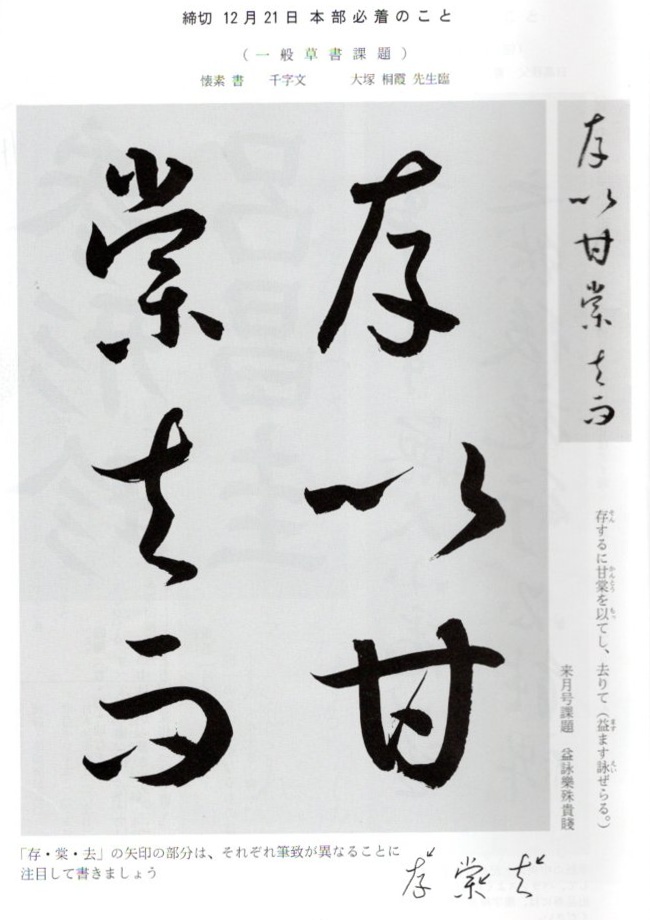 締切 12月21日 本部必着のこと
（一般草書課題）
懐素 書 千字文 大塚 桐霞 先生臨
存以甘棠去而
存以甘
棠去而
存するに甘棠を以てし、去りて（益ます詠ぜらる。）
来月号課題 益詠樂殊貴賤
「存・棠・去」の矢印の部分は、それぞれ筆致が異なることに
注目して書きましょう
存 棠 去